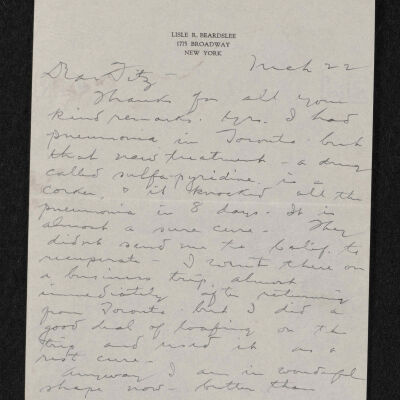 LISLE R. BEARDSLEE
1775 BROADWAY
NEW YORK
Mch 22
Dear Fitz -
Thanks for all your
kind remarks. Yes. I had
pneumonia in Toronto but
that new treatment - a drug
called sulfa-pyridine is a
corker. & it knocked all the
pneumonia in 8 days. It is
almost a sure cure - They
didnt send me to Calif. to
recuperate. I went there on
a business trip, almost
immediately after returning
from Toronto but I did a
good deal of loafing on the
trip and used it as a
rest cure -
Anyway I am in wonderful
shape now - better than